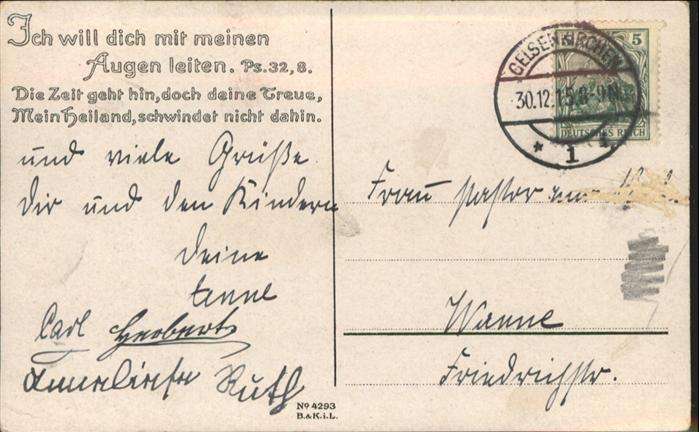 Ich will dich mit meinen
Augen leiten. Ps. 32, 8.
Die Zeit geht hin, doch deine Treue,
Mein Heiland, schwindet nicht dahin.
und viele Grüße
dir und den Kindern
deine
Anne
Carl Herbert
Annaliese Ruth
No 4293
B.&K.i.L.
GELSENKIRCHEN
30.12.15.8-9N.
* 1
5
DEUTSCHES REICH
Frau Pastor
Wanne
Friedrichstr.